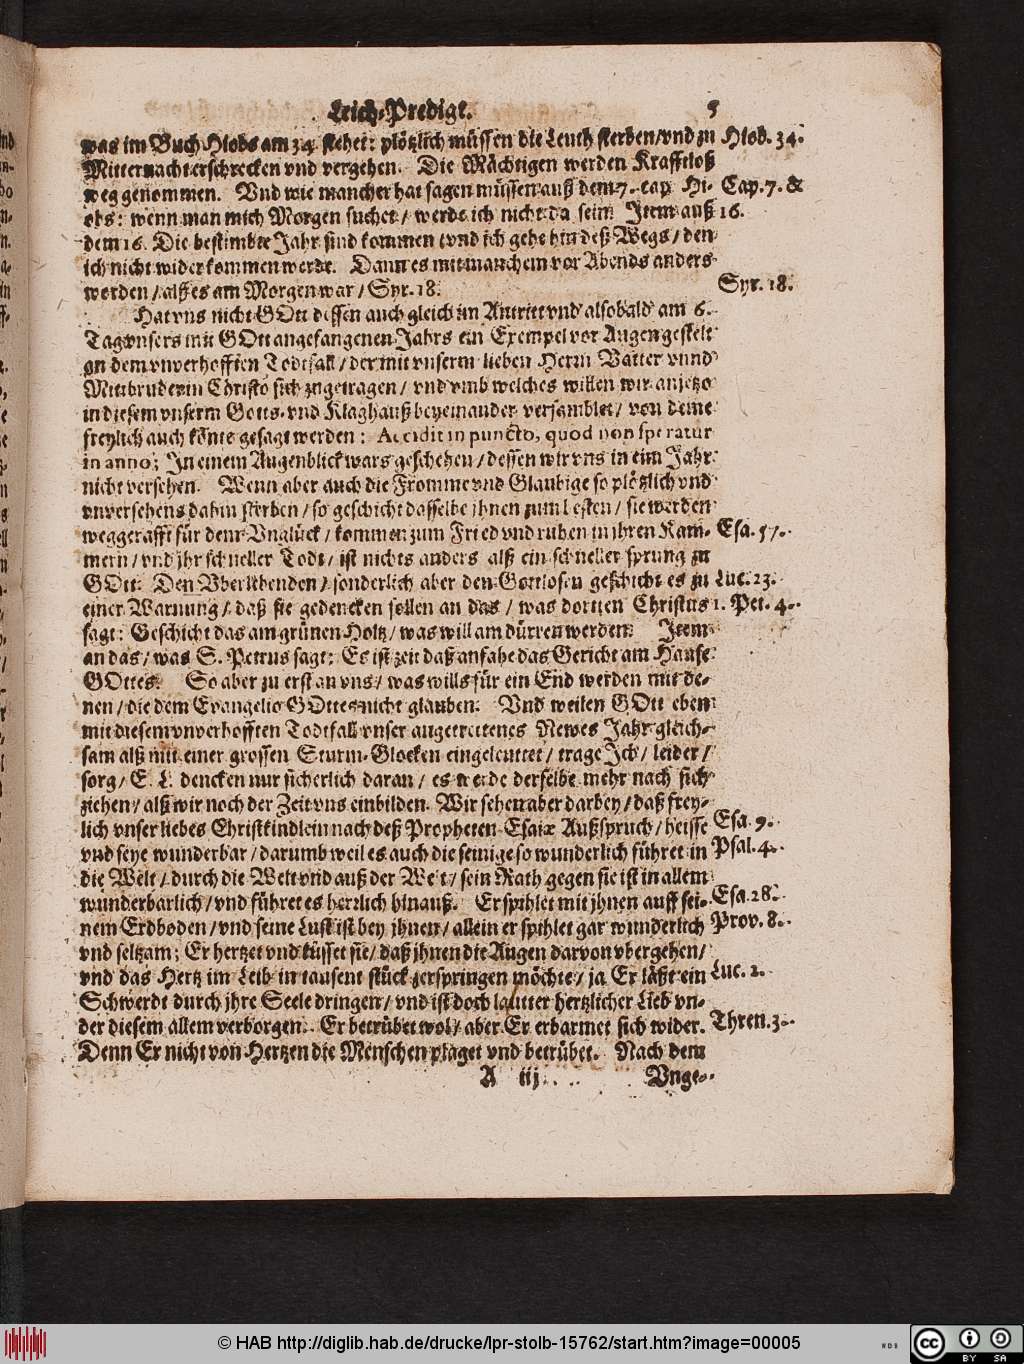 Leich-Predigt. 5
was im Buch Hiobs am 34. stehet: plötzlich müssen die Leuth sterben/vnd zu Hiob. 34.
Mitternacht erschrecken vnd vergehen. Die Mächtigen werden Krafftloß
weg genommen. Vnd wie mancher hat sagen müssen auß dem 7. cap. Hi- Cap. 7. &
obs: wenn man mich Morgen suchet/ werde ich nicht da sein Item auß 16.
dem 16. Die bestimbte Jahr sind kommen vnd ich gehe hin deß Wegs/ den
ich nicht wider kommen werde. Dann es mit manchem vor Abends anders
worden/ alß es am Morgen war/ Syr. 18. Syr. 18.
Hat vns nicht GOtt dessen auch gleich im Antritt vnd alsobald am 6.
Tag vnsers mit GOtt angefangenen Jahrs ein Exempel vor Augen gestelt
an dem vnverhofften Todtfall/ der mit vnserm lieben Herrn Vatter vnnd
Mitbruder in Christo sich zugetragen/ vnd vmb welches willen wir anjetzo
in diesem vnserm Gotts- vnd Klaghauß beyeinander versamblet/ von deme
freylich auch könte gesagt werden: Accidit in puncto, quod non speratur
in anno; In einem Augenblick wars geschehen/ dessen wir vns in eim Jahr
nicht versehen. Wenn aber auch die Fromme vnd Glaubige so plötzlich vnd
vnversehens dahin sterben/ so geschicht dasselbe jhnen zum besten/ sie werden
weggerafft für dem Vnglück/ kommen zum Fried vnd ruhen in jhren Kam- Esa. 57.
mern/ vnd jhr schneller Todt/ ist nichts anders alß ein schneller sprung zu
GOtt. Den Vberlebenden/ sonderlich aber den Gottlosen geschicht es zu Luc. 23.
einer Warnung/ daß sie gedencken sollen an das/ was dorten Christus 1. Pet. 4.
sagt: Geschicht das am grünen Holtz/ was will am dürren werden: Item
an das/ was S. Petrus sagt: Es ist zeit daß anfahe das Gericht am Hause
GOttes. So aber zu erst an vns/ was wills für ein End werden mit de-
nen/ die dem Evangelio GOttes nicht glauben. Vnd weilen GOtt eben
mit diesem vnverhofften Todtfall vnser angetrettenes Newes Jahr gleich-
sam alß mit einer grossen Sturm-Glocken eingeleuttet/ trage Ich/ leider/
sorg/ E. L. dencken nur sicherlich daran/ es werde derselbe mehr nach sich
ziehen/ alß wir noch der Zeit vns einbilden. Wir sehen aber darbey/ daß frey-
lich vnser liebes Christkindlein nach deß Propheten Esaiæ Außspruch/ heisse Esa. 9.
vnd seye wunderbar/ darumb weil es auch die seinige so wunderlich führet in Psal. 4.
die Welt/ durch die Welt vnd auß der Welt/ sein Rath gegen sie ist in allem
wunderbarlich/ vnd führet es herrlich hinauß. Er spihlet mit jhnen auff sei- Esa. 28.
nem Erdboden/ vnd seine Lust ist bey jhnen/ allein er spihlet gar wunderlich Prov. 8.
vnd seltzam; Er hertzet vnd küsset sie/ daß jhnen die Augen darvon vbergehen/
vnd das Hertz im Leib in tausent stück zerspringen möchte/ ja Er läßt ein Luc. 2.
Schwerdt durch jhre Seele dringen/ vnd ist doch lautter hertzlicher Lieb vn-
der diesem allem verborgen. Er betrübet wol/ aber Er erbarmet sich wider. Thren. 3.
Denn Er nicht von Hertzen die Menschen plaget vnd betrübet. Nach dem
A iij Vnge-
© HAB http://diglib.hab.de/drucke/lpr-stolb-15762/start.htm?image=00005
cc BY SA